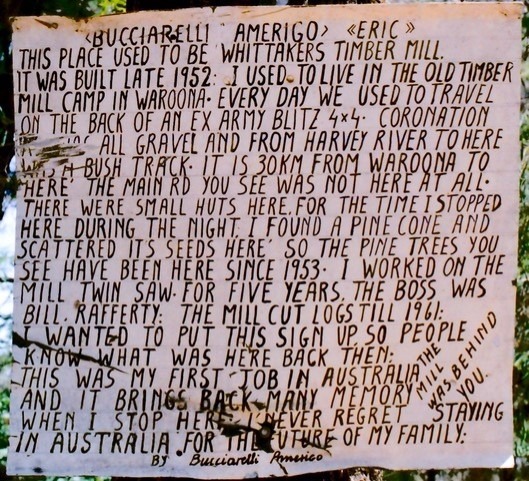 <BUCCIARELLI AMERIGO> «ERIC»
THIS PLACE USED TO BE WHITTAKERS TIMBER MILL.
IT WAS BUILT LATE 1952: I USED TO LIVE IN THE OLD TIMBER
MILL CAMP IN WAROONA. EVERY DAY WE USED TO TRAVEL
ON THE BACK OF AN EX ARMY BLITZ 4x4. CORONATION
ALL GRAVEL AND FROM HARVEY RIVER TO HERE
WAS A BUSH TRACK. IT IS 30KM FROM WAROONA TO
HERE' THE MAIN RD YOU SEE WAS NOT HERE AT ALL.
THERE WERE SMALL HUTS HERE, FOR THE TIME I STOPPED
HERE DURING THE NIGHT. I FOUND A PINE CONE AND
SCATTERED ITS SEEDS HERE' SO THE PINE TREES YOU
SEE HAVE BEEN HERE SINCE 1953. I WORKED ON THE
MILL TWIN SAW. FOR FIVE YEARS. THE BOSS WAS
BILL. RAFFERTY: THE MILL CUT LOGS TILL 1961:
I WANTED TO PUT THIS SIGN UP SO PEOPLE
KNOW WHAT WAS HERE BACK THEN:
THIS WAS MY FIRST JOB IN AUSTRALIA
AND IT BRINGS BACK MANY MEMORY
WHEN I STOP HERE I NEVER REGRET STAYING
IN AUSTRALIA FOR THE FUTURE OF MY FAMILY:
THE MILL
WAS BEHIND
YOU.
BY Bucciarelli Americo